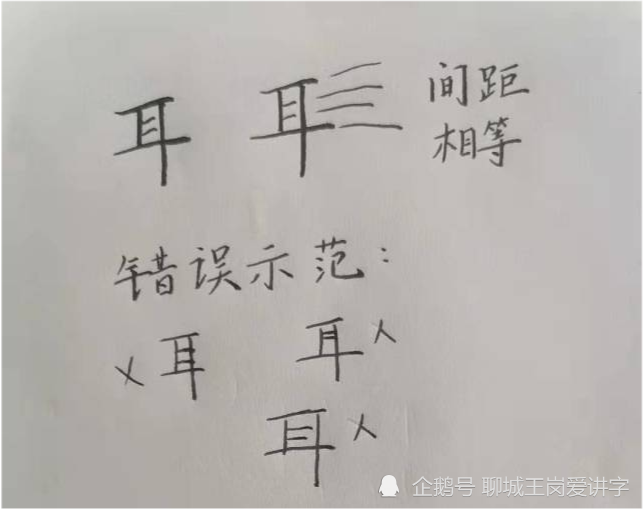 耳 耳 间距
相等
错误示范：
×耳 耳×
耳×
企鹅号 聊城王岗爱讲字